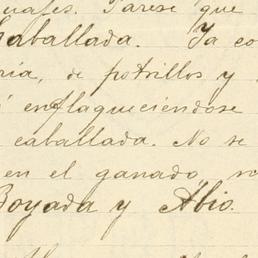 Parese que
Caballada. Ya co
ria, de potrillos y
enflaqueciéndose
caballada. No se
en el ganado,
Boyada y Abio.